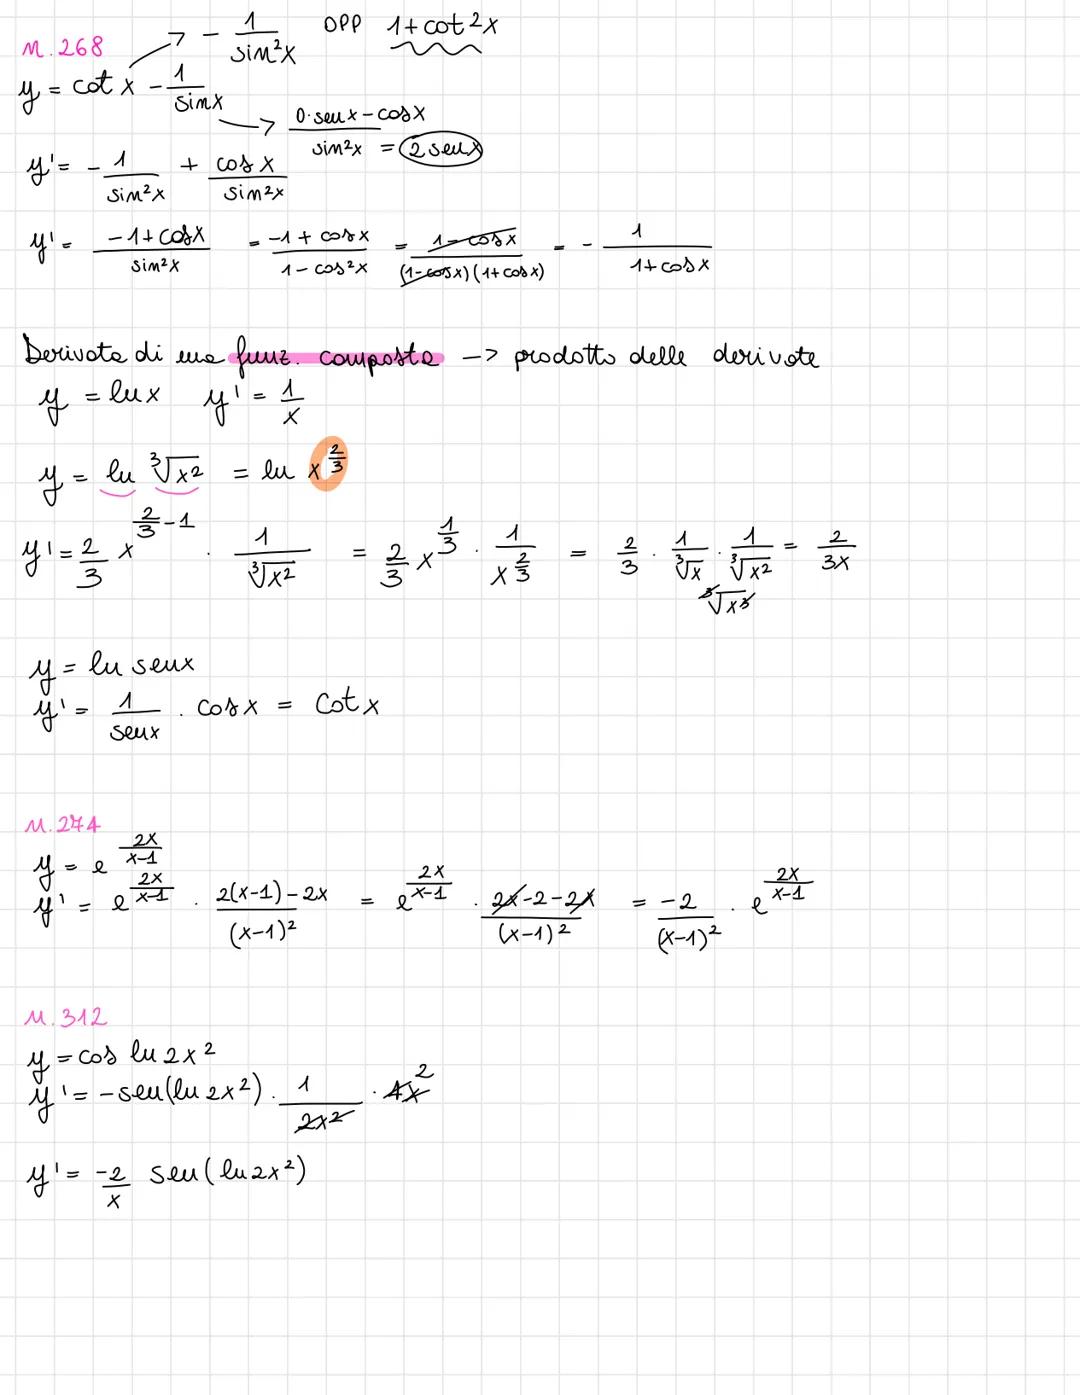 n.268 → - 1/sin²x OPP 1+cot2x
y = cot x - 1/sinx
→ (0·senx - cosx)/sin²x = 2senx
y' = - 1/sin²x + cosx/sin²x
y' = (-1+cosx)/sin²x = (-1+cosx)/(1-cos²x) = (1-cosx)/((1-cosx)(1+cosx)) = - 1/(1+cosx)
Derivata di una funz. composta -> prodotto delle derivate
y = lnx y' = 1/x
y = ln ³√x² = ln x^(2/3)
y' = 2/3 x^(2/3 -1) · 1/³√x² = 2/3 x^(1/3) · 1/x^(2/3) = 2/3 · 1/³√x · 1/³√x² = 2/3x
³√x³
y = ln senx
y' = 1/senx · cosx = cotx
n.274
y = e^(2x/(x-1))
y' = e^(2x/(x-1)) · (2(x-1)-2x)/(x-1)² = e^(2x/(x-1)) · (2x-2-2x)/(x-1)² = -2/(x-1)² · e^(2x/(x-1))
n.312
y = cos ln2x²
y' = -sen(ln2x²) · 1/2x² · 4x 2
y' = -2/x sen(ln2x²)